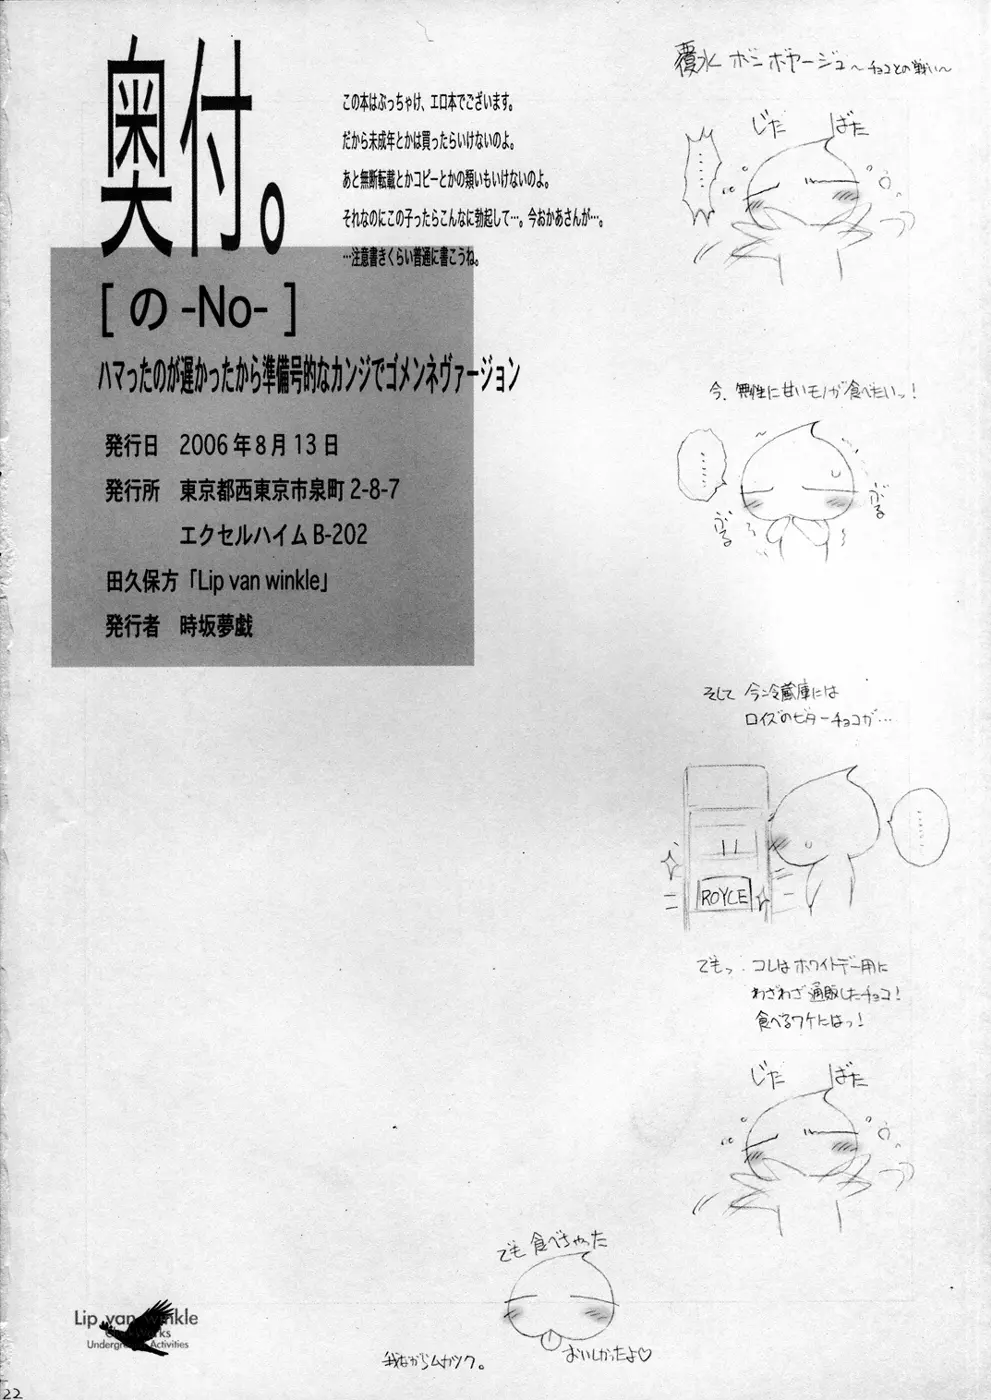 奥付。
この本はぶっちゃけ、エロ本でございます。
だから未成年とかは買ったらいけないのよ。
あと無断転載とかコピーとかの類いもいけないのよ。
それなのにこの子ったらこんなに勃起して…。今おかあさんが…。
…注意書きくらい普通に書こうね。
[ の -No- ]
ハマったのが遅かったから準備号的なカンジでゴメンネヴァージョン
発行日 2006年8月13日
発行所 東京都西東京市泉町2-8-7
エクセルハイムB-202
田久保方「Lip van winkle」
発行者 時坂夢戯
覆水 ボン ボヤージュ ～チョコとの戦い～
じた ばた
……
今、無性に甘いモノが食べたいっ!
……
ぷる
ぷる
そして 今冷蔵庫には
ロイズのビターチョコが…
……
ROYCE
でもっ、コレはホワイトデー用に
わざわざ通販したチョコ!
食べるワケにはっ!
じた ばた
でも食べちゃった
おいしかったよ♡
我ながらムカツク。
Lip van winkle
Underground Activities
22